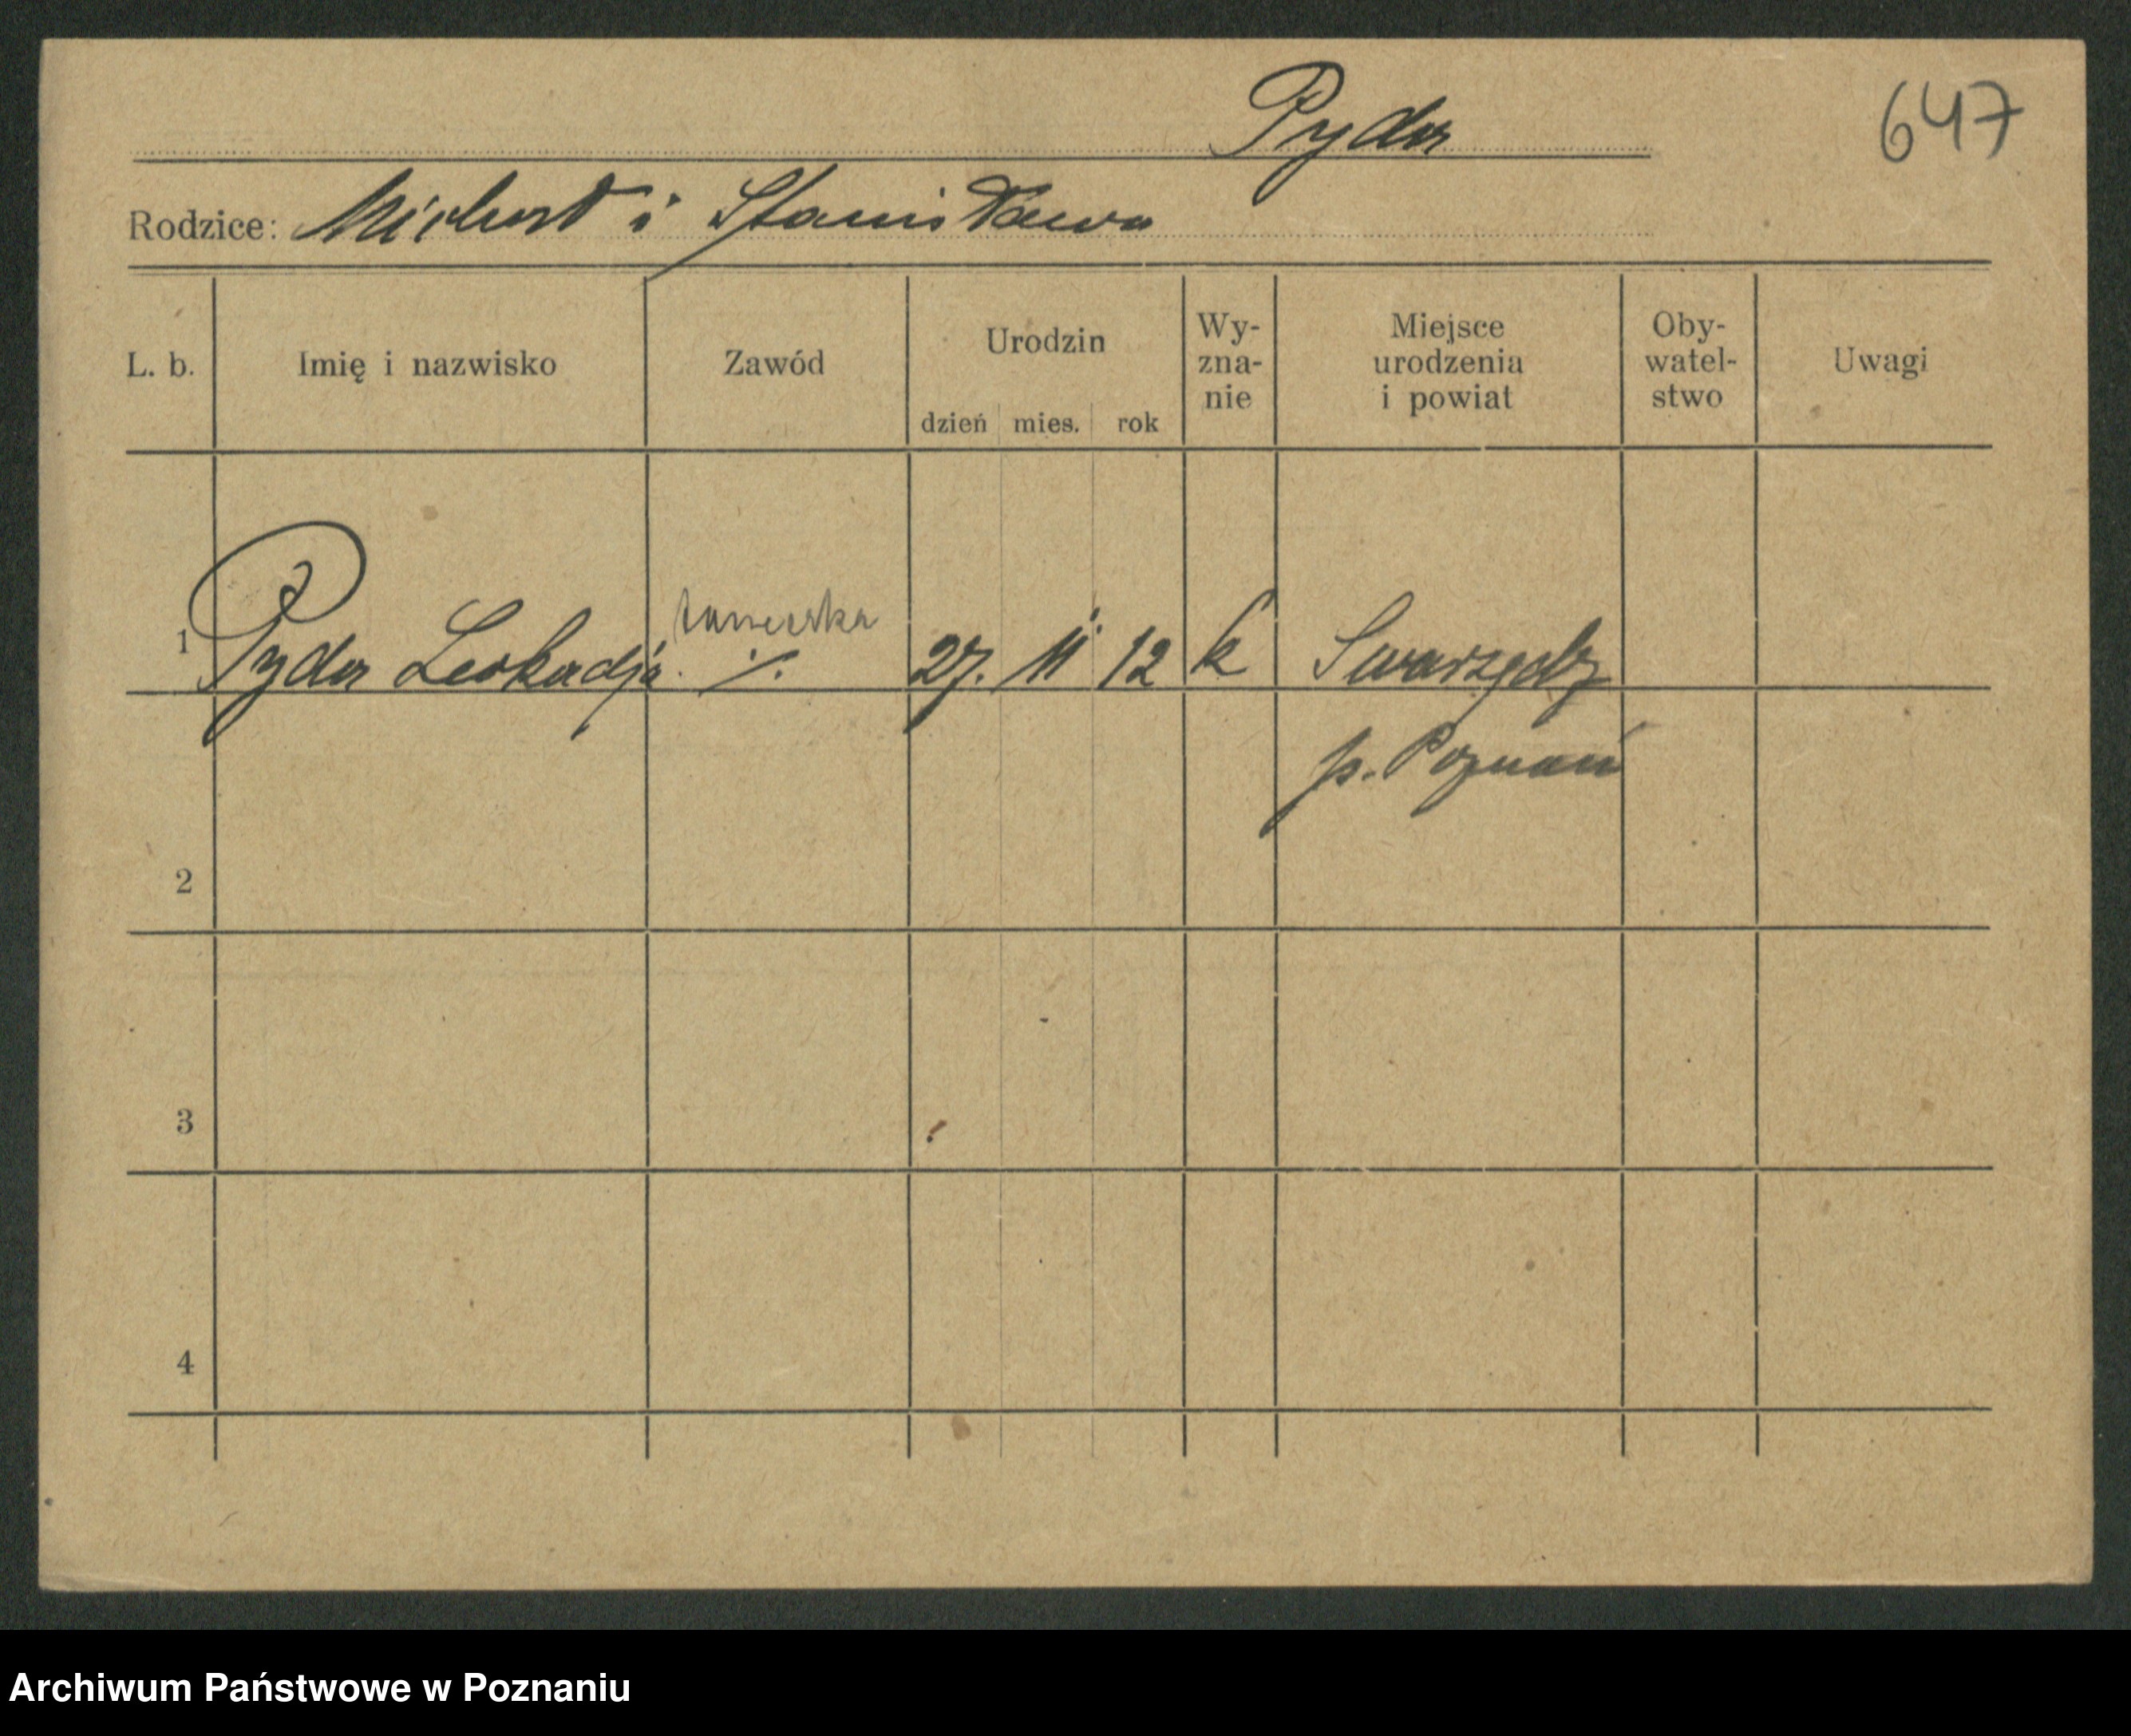 Pyda
647
Rodzice: Michał i Stanisława
L. b.
Imię i nazwisko
Zawód
Urodzin
dzień mies. rok
Wy-
zna-
nie
Miejsce
urodzenia
i powiat
Oby-
watel-
stwo
Uwagi
1 Pyda Leokadja ./. 27. 11 12 k Swarzędz
p. Poznań
2
3
4
Archiwum Państwowe w Poznaniu